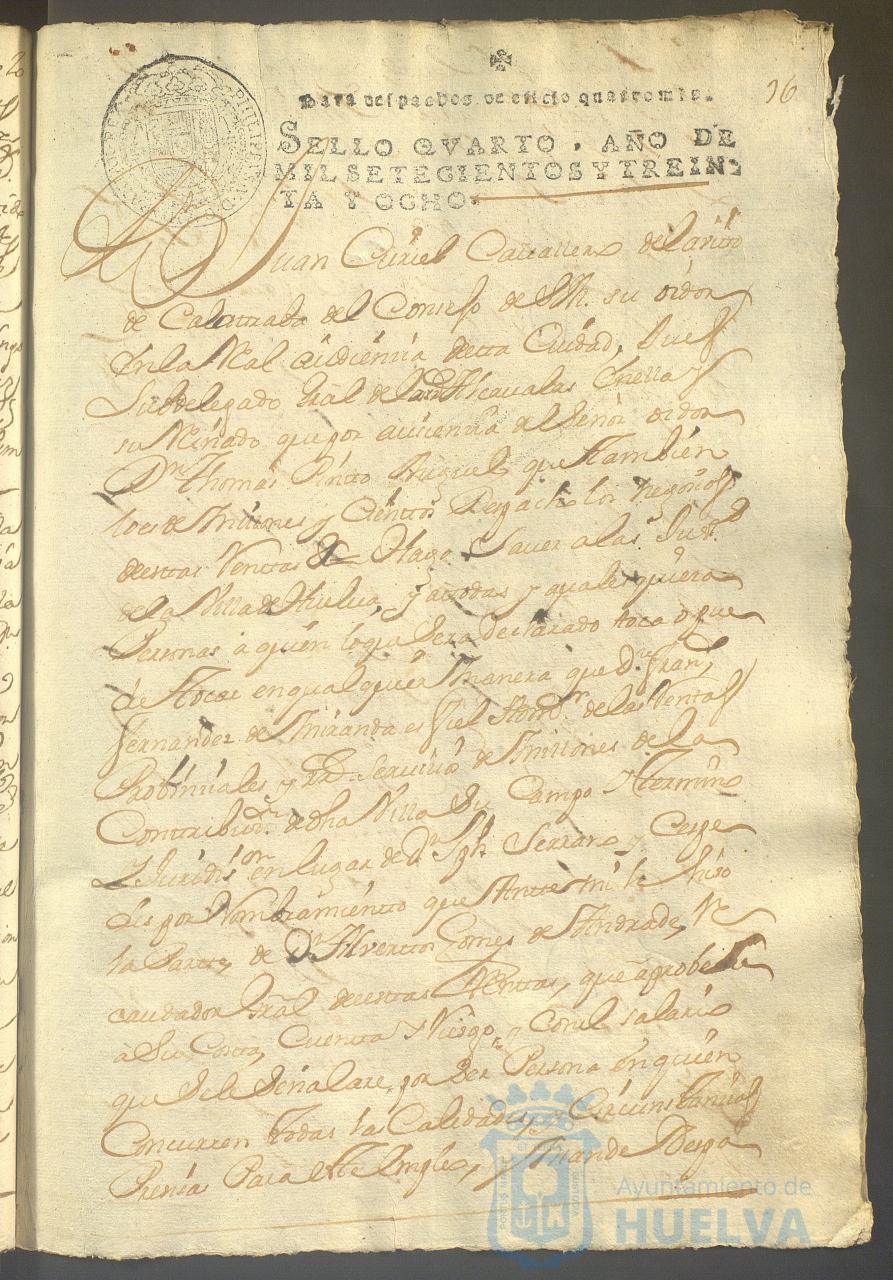 36
Para despachos de oficio quatro mrs.
SELLO QVARTO, AÑO DE
MIL SETECIENTOS Y TREIN-
TA Y OCHO.
Juan Curiel Cauallero del
de Calatraba del Consejo de SM. su oidor
En la Real audiencia desta Ciudad, Juez
Subdelegado Gral de las Rs Alcaualas Enella y
su Reinado que por ausencia del Señor oidor
Dn. Thomas Pinto Miguel que tambien
loes de Millones y Cientos Despacho los negocios
destas Rentas &a Hago Sauer a las Justas
de la Villa de Huelua, y a todas y quales quiera
Personas a quien lo qui sera declarado toca o pue
de tocar en qualquier manera que Dn. Franco
fernandez de Miranda es fiel Admor. de las Rentas
Probinciales y Rl. Seruicio de Millones de la
Contribuon. de dha Villa Su Campo y termino
y Jurisdison. en lugar de Dn. Jph. Serrano y Cespe
des por Nombramiento que Ante mi le hiso
la Parte de Dn. Aluerto Gomes de Andrade, Re
caudador Gral destas Rentas, que aprobe
a Su Costa, Cuenta y Riesgo, y Con el salario
que Sele Señalare, por Ser Persona en quien
Concurren todas las Calidades, y Circunstancias
Presisas Para este Empleo, y Mande Despa
Ayuntamiento de
HUELVA